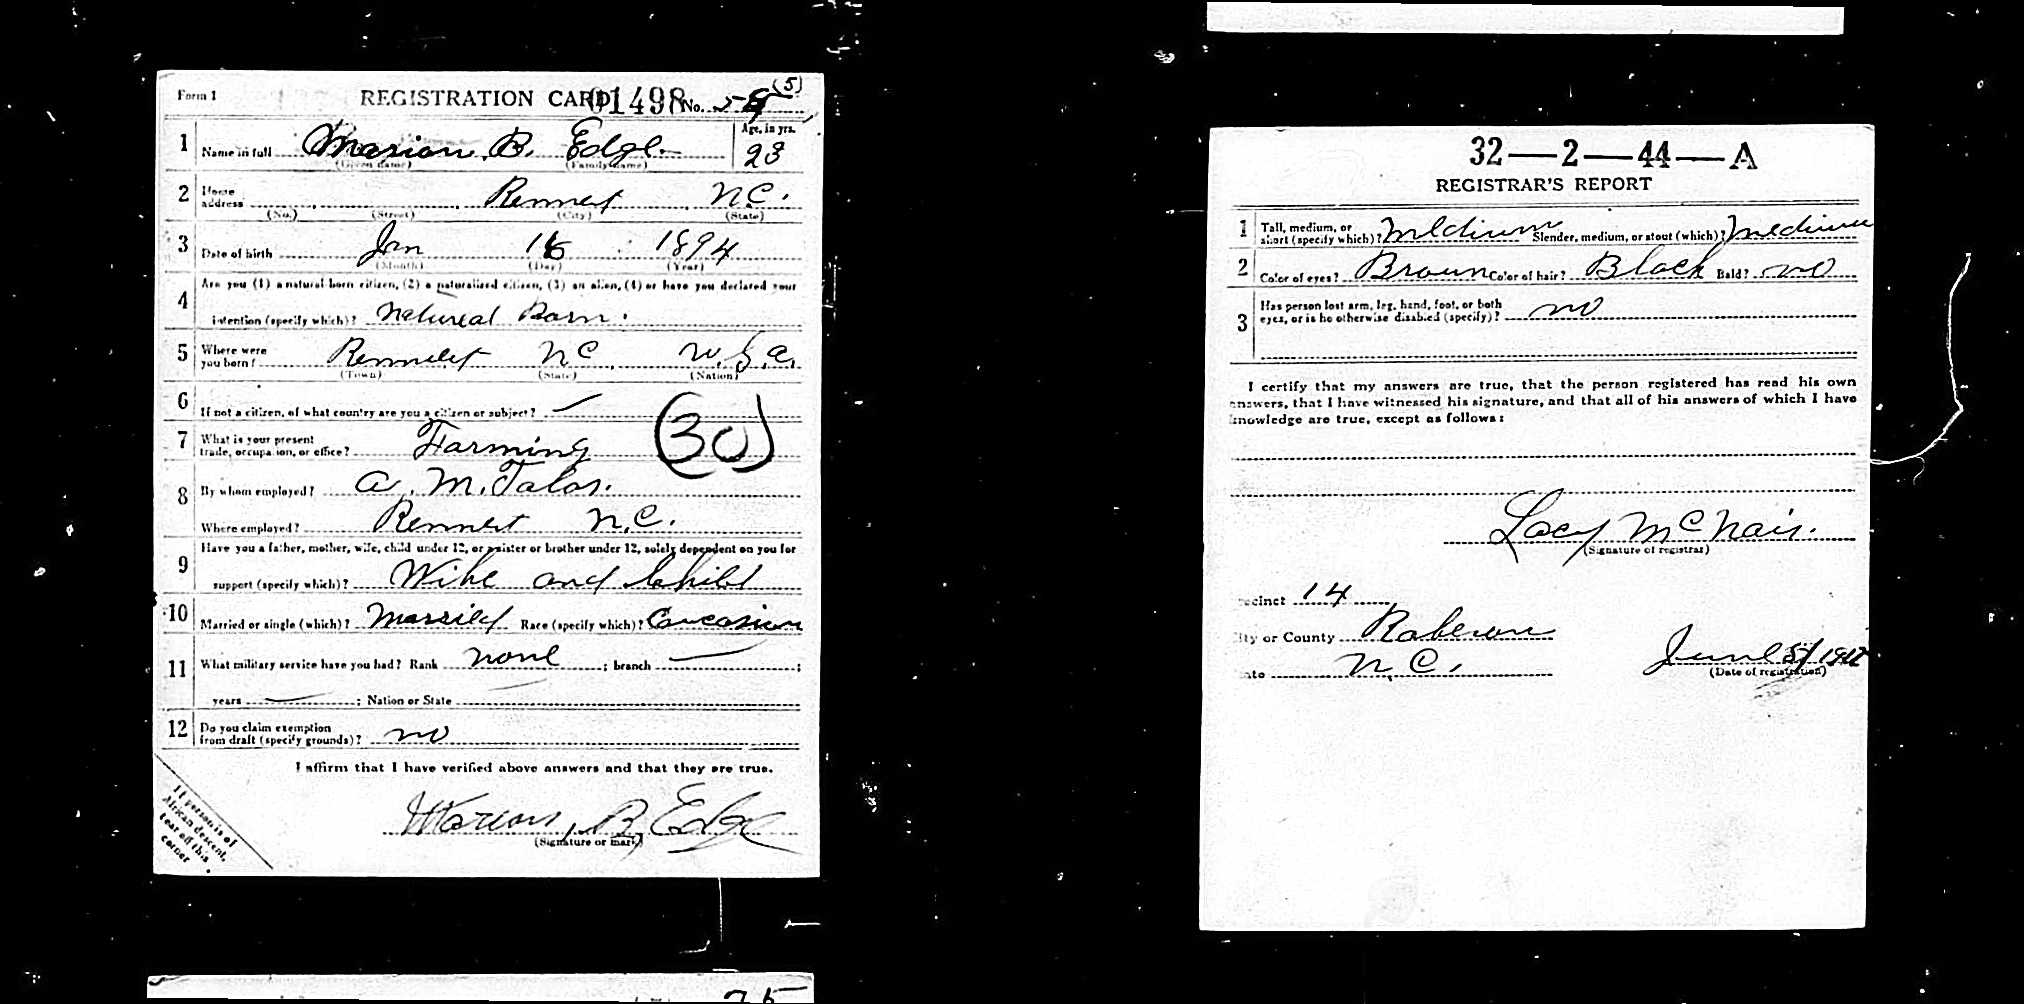 Form 1 REGISTRATION CARD 01498 No. 59 (5)
1 Name in full Marion B. Edge Age, in yrs. 23
(Given name) (Family name)
2 Home address Rennert N.C.
(No.) (Street) (City) (State)
3 Date of birth Jan 16 1894
(Month) (Day) (Year)
4 Are you (1) a natural born citizen, (2) a naturalized citizen, (3) an alien, (4) or have you declared your
intention (specify which)? Natureal Born.
5 Where were you born? Rennert NC U.S.A.
(Town) (State) (Nation)
6 If not a citizen, of what country are you a citizen or subject? —
7 What is your present trade, occupation, or office? Farming (30)
8 By whom employed? A. M.
Where employed? Rennert N.C.
9 Have you a father, mother, wife, child under 12, or a sister or brother under 12, solely dependent on you for
support (specify which)? Wife and Child
10 Married or single (which)? Married Race (specify which)? Caucasian
11 What military service have you had? Rank none ; branch — ;
years — ; Nation or State —
12 Do you claim exemption from draft (specify grounds)? no
I affirm that I have verified above answers and that they are true.
Marion, B, Edge
(Signature or mark)
If person is of
African descent,
tear off this
corner
75
32—2—44—A
REGISTRAR'S REPORT
1 Tall, medium, or short (specify which)? Medium Slender, medium, or stout (which)? Medium
2 Color of eyes? Brown Color of hair? Black Bald? no
3 Has person lost arm, leg, hand, foot, or both
eyes, or is he otherwise disabled (specify)? no
I certify that my answers are true, that the person registered has read his own
answers, that I have witnessed his signature, and that all of his answers of which I have
knowledge are true, except as follows:
Lacy McNair.
(Signature of registrar)
ecinct 14
ity or County Robeson
ate N.C. June 5/
(Date of registration)